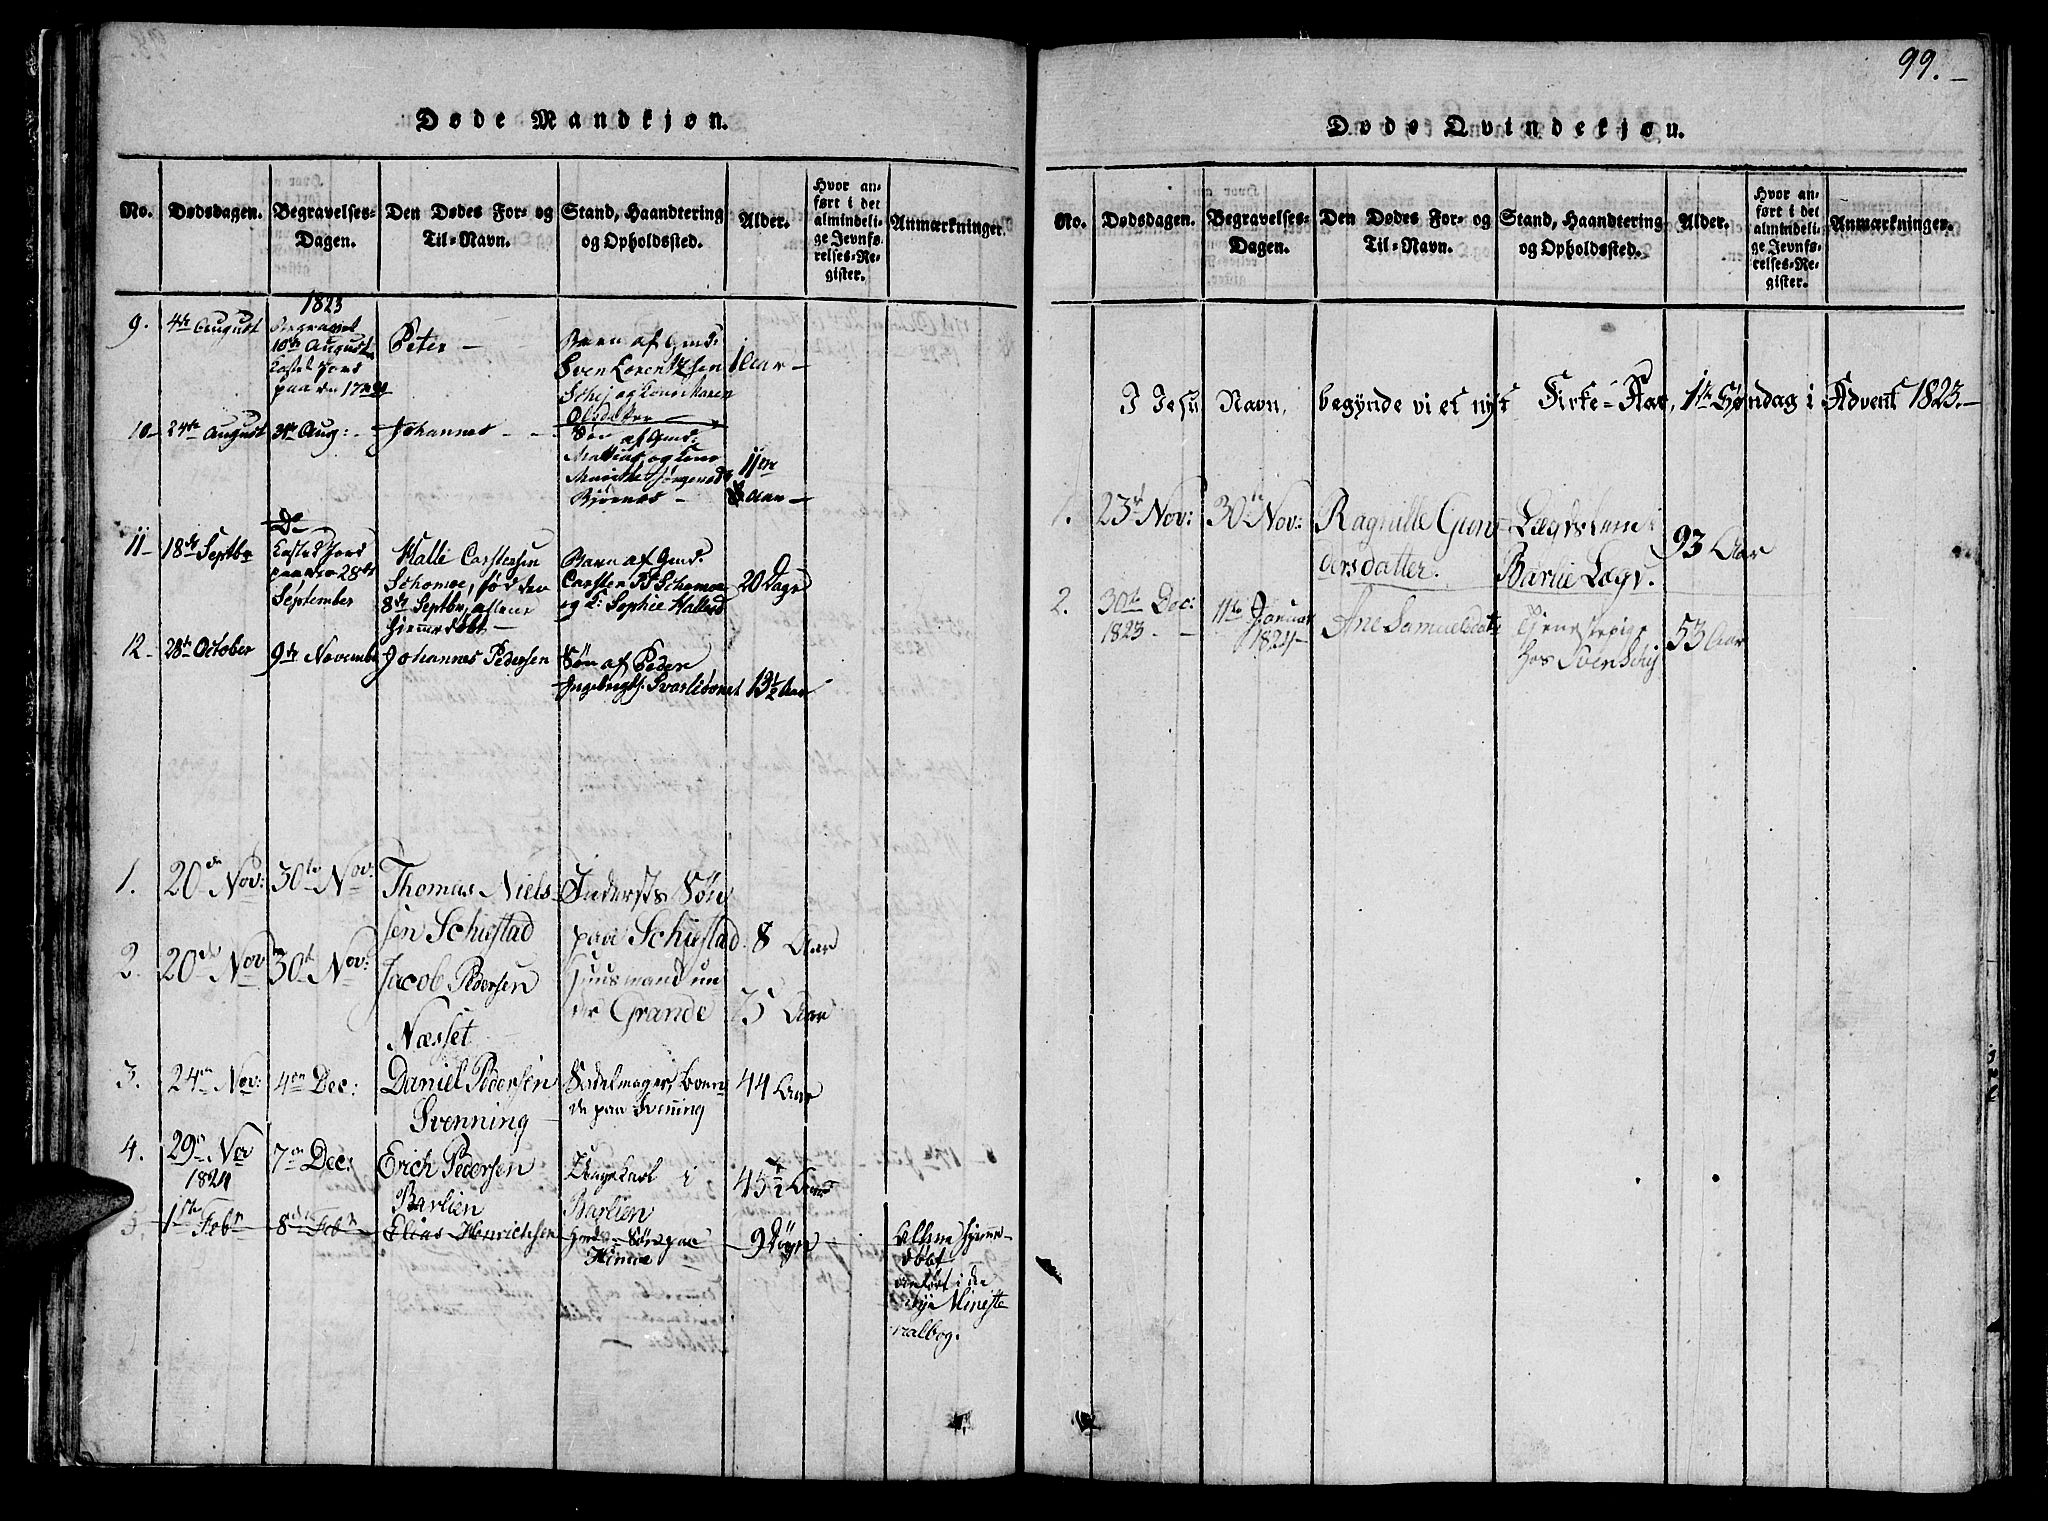 99.
Døde Mandkjøn.
No.
Dødsdagen.
Begravelses-
Dagen.
Den Dødes For- og
Til-Navn.
Stand, Haandtering
og Opholdssted.
Alder.
Hvor an-
ført i det
almindeli-
ge Jevnfø-
relses-Re-
gister.
Anmærkninger.
1823
9.
4de August
Begravet
10de August
Kastet Jord
paa den 17
Peter
Barn af Gmd:
Sven Lorentzsen
Schej og Kone Karen
1 Aar
10
24de August
Aug:
Johannes
Søn af Gmd:
og Kone
11
Aar
11
18de Septbr
Kastet Jord
paa den 28de
September
Halle Carstensen
Schomoe, fød den
8de Septbr, aftenen
hjemmedøbt
Barn af Gmd.
Carsten Schomoe
og K: Sophie
20 Dage
12
28de October
9de Novembr
Johannes Pedersen
Søn af Peder
Ingebrigts.
13½ Aar
1.
20de Nov:
30te Nov:
Thomas Niels
sen Schiestad
Indersts Søn
paa Schiestad
8 Aar
2.
20de Nov
30te Nov:
Jacob Pedersen
Næsset
Huusmand un
der Grande
75 Aar
3.
24de Nov:
4de Dec:
Daniel Pedersen
Svenning
Sadelmager, boen-
de paa Svenning
44 Aar
4.
29de Nov
7de Dec:
Erich Pedersen
Barlien
i
Barlien
45½ Aar
1824
5.
1ste Febr
8de Febr
Elias Henrichsen
Gmds Søn paa
9 Døgn
hjemme-
døbt
anført i den
nye Ministe
rialbog.
Døde Qvindekjøn.
No.
Dødsdagen.
Begravelses-
Dagen.
Den Dødes For- og
Til-Navn.
Stand, Haandtering
og Opholdssted.
Alder.
Hvor an-
ført i det
almindeli-
ge Jevnfø-
relses-Re-
gister.
Anmærkninger.
I Jesu Navn, begynde vi et nyt Kirke-Aar, 1te Søndag i Advent 1823.
1.
23de Nov:
30te Nov:
Ragnille Gun-
dersdatter.
Lægdslem i
Barlie Lægd.
93 Aar
2.
30te Dec:
1823
11te Januar
1824
Ane Samuelsdatr
Tjenestepige
hos Sven Schej
53 Aar